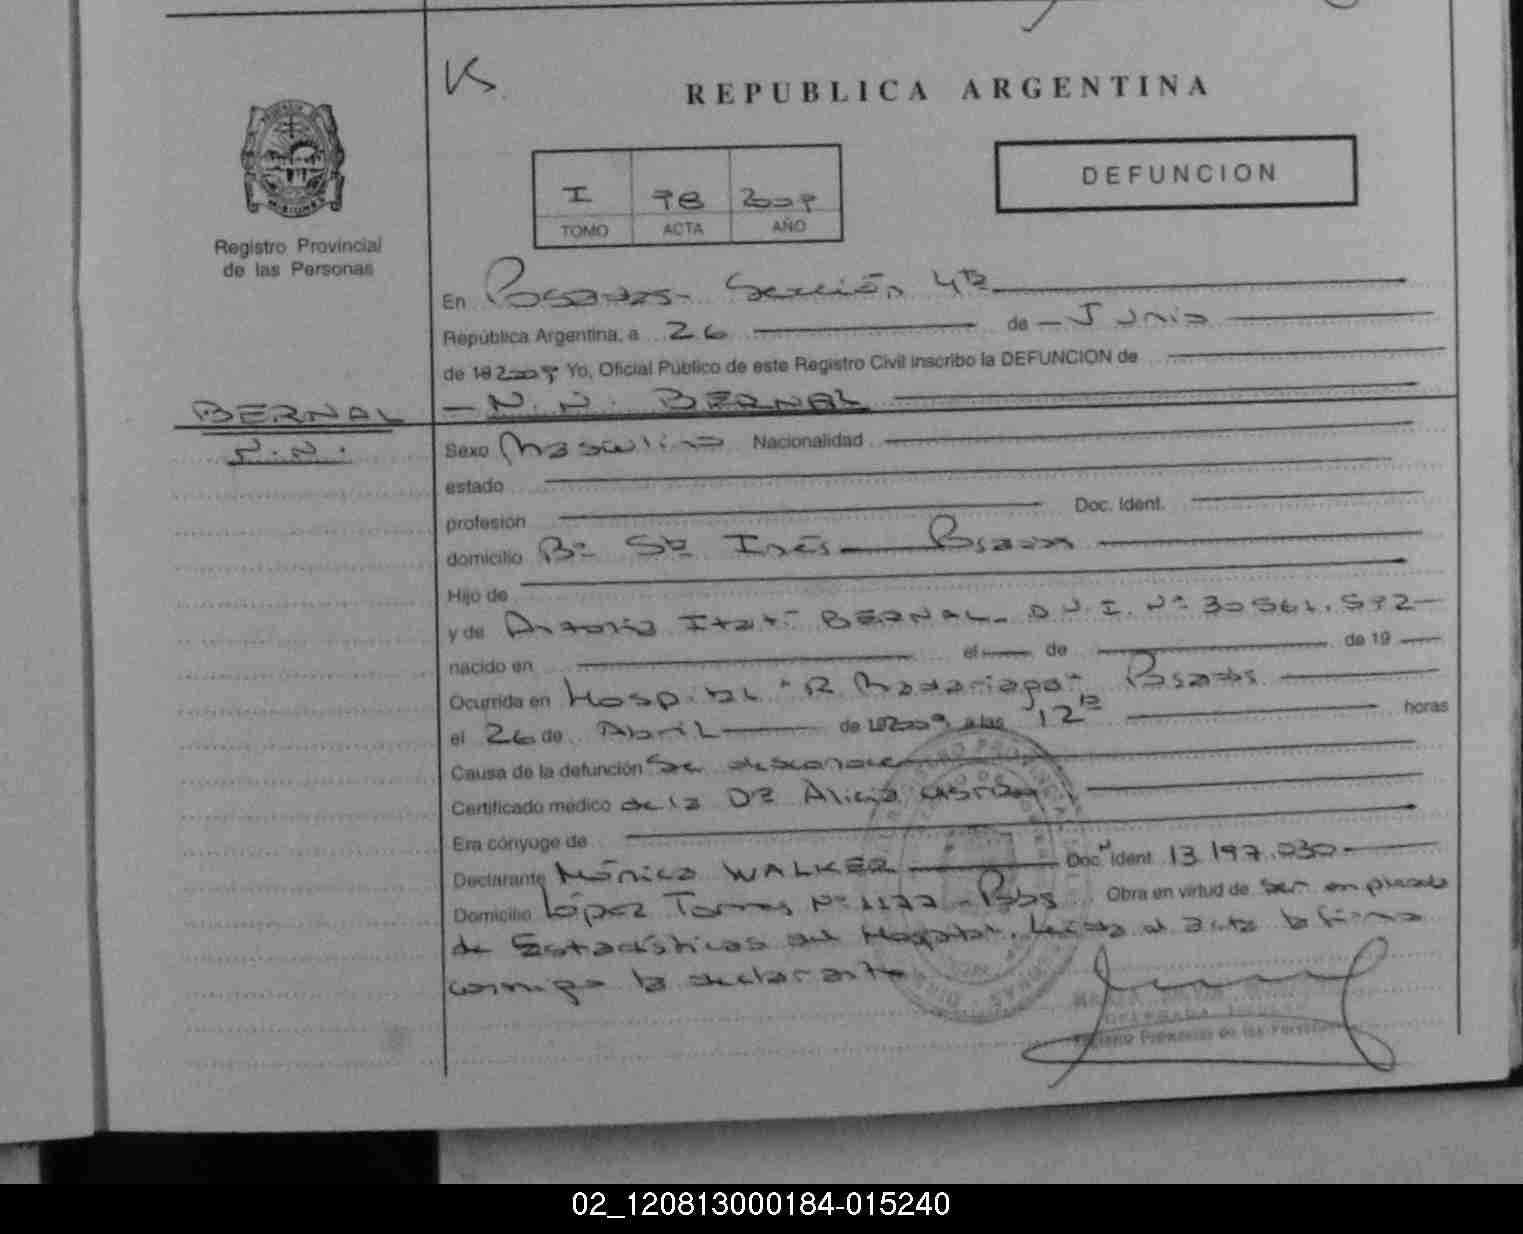 K
REPUBLICA ARGENTINA
DEFUNCION
I 78 2009
TOMO ACTA AÑO
MISIONES
Registro Provincial
de las Personas
En Posadas - Sección 4ta
República Argentina, a 26 de - Junio
de 19 2009 Yo, Oficial Público de este Registro Civil inscribo la DEFUNCION de
BERNAL
N.N.
- N. N. BERNAL
Sexo Masculino Nacionalidad
estado
profesión Doc. Ident.
domicilio Bº Sta Inés - Posadas
Hijo de
y de Antonia Itatí BERNAL - D.N.I. Nº 30561.592 -
nacido en el de de 19
Ocurrida en Hospital "R. Madariaga" Posadas
el 26 de Abril de 19 2009 a las 12 horas
Causa de la defunción Se desconoce
Certificado médico de la Dra Alicia
Era cónyuge de
Declarante Mónica WALKER Doc. Ident. 13.197.030
Domicilio López Torres Nº 1177 - Pdas Obra en virtud de ser empleada
de Estadísticas del Hospital. Leída el acta la firma
conmigo la declarante
Registro Provincial de las Personas
02_120813000184-015240